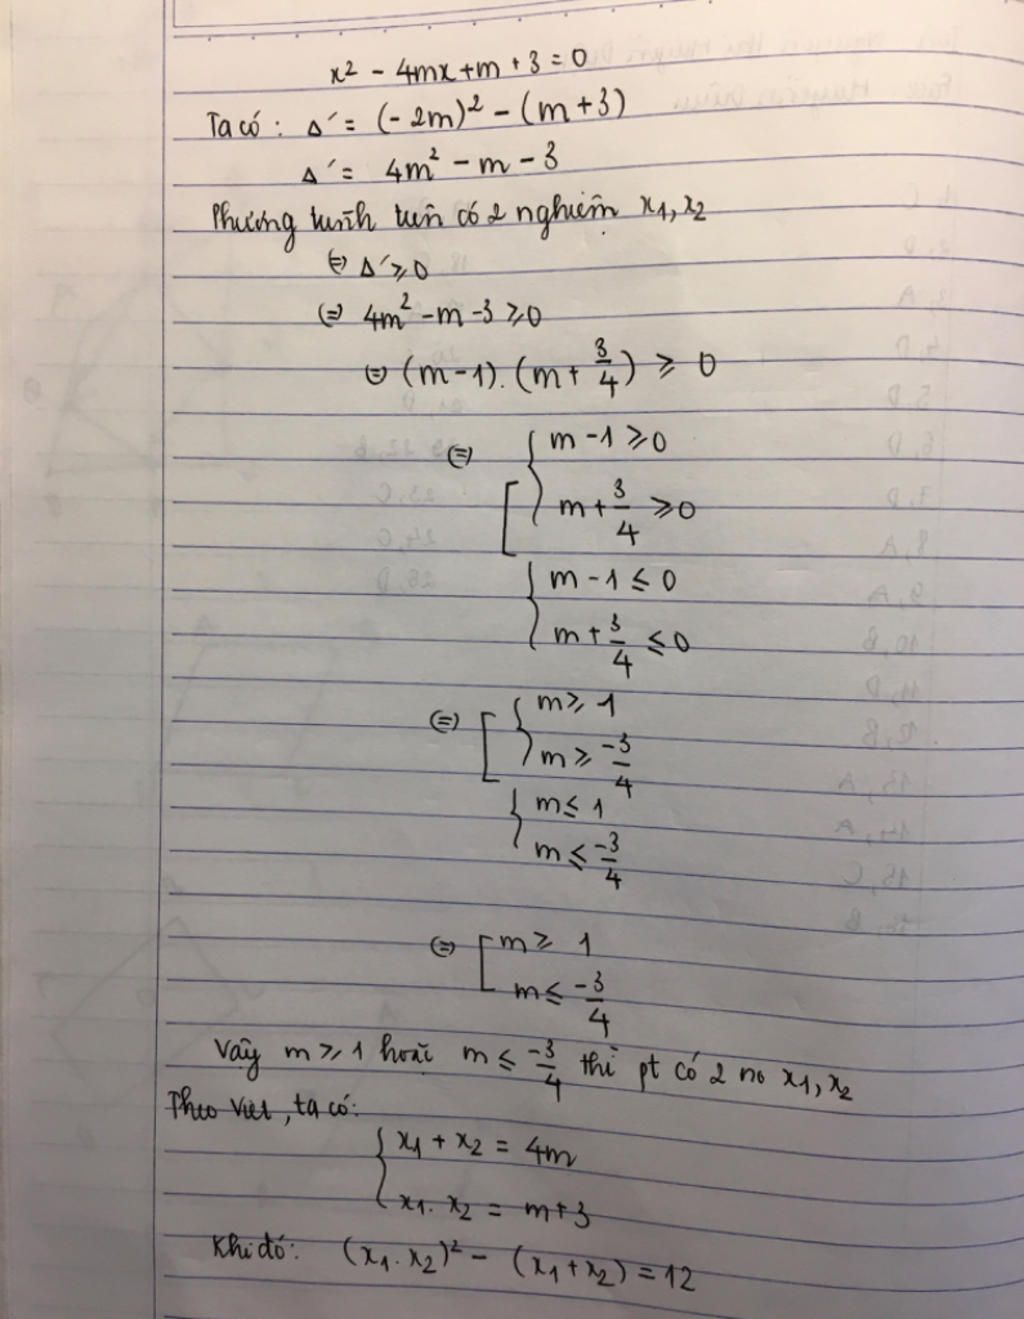 x² - 4mx + m + 3 = 0
Ta có : Δ' = (-2m)² - (m+3)
Δ' = 4m² - m - 3
Phương trình trên có 2 nghiệm x₁, x₂
⇔ Δ' ⩾ 0
⇔ 4m² - m - 3 ⩾ 0
⇔ (m-1). (m + 3/4) ⩾ 0
⇔ [ { m - 1 ⩾ 0
m + 3/4 ⩾ 0
{ m - 1 ⩽ 0
m + 3/4 ⩽ 0
⇔ [ { m ⩾ 1
m ⩾ -3/4
{ m ⩽ 1
m ⩽ -3/4
⇔ [ m ⩾ 1
m ⩽ -3/4
Vậy m ⩾ 1 hoặc m ⩽ -3/4 thì pt có 2 no x₁, x₂
Theo Viet, ta có:
{ x₁ + x₂ = 4m
x₁. x₂ = m+3
Khi đó: (x₁. x₂)² - (x₁ + x₂) = 12